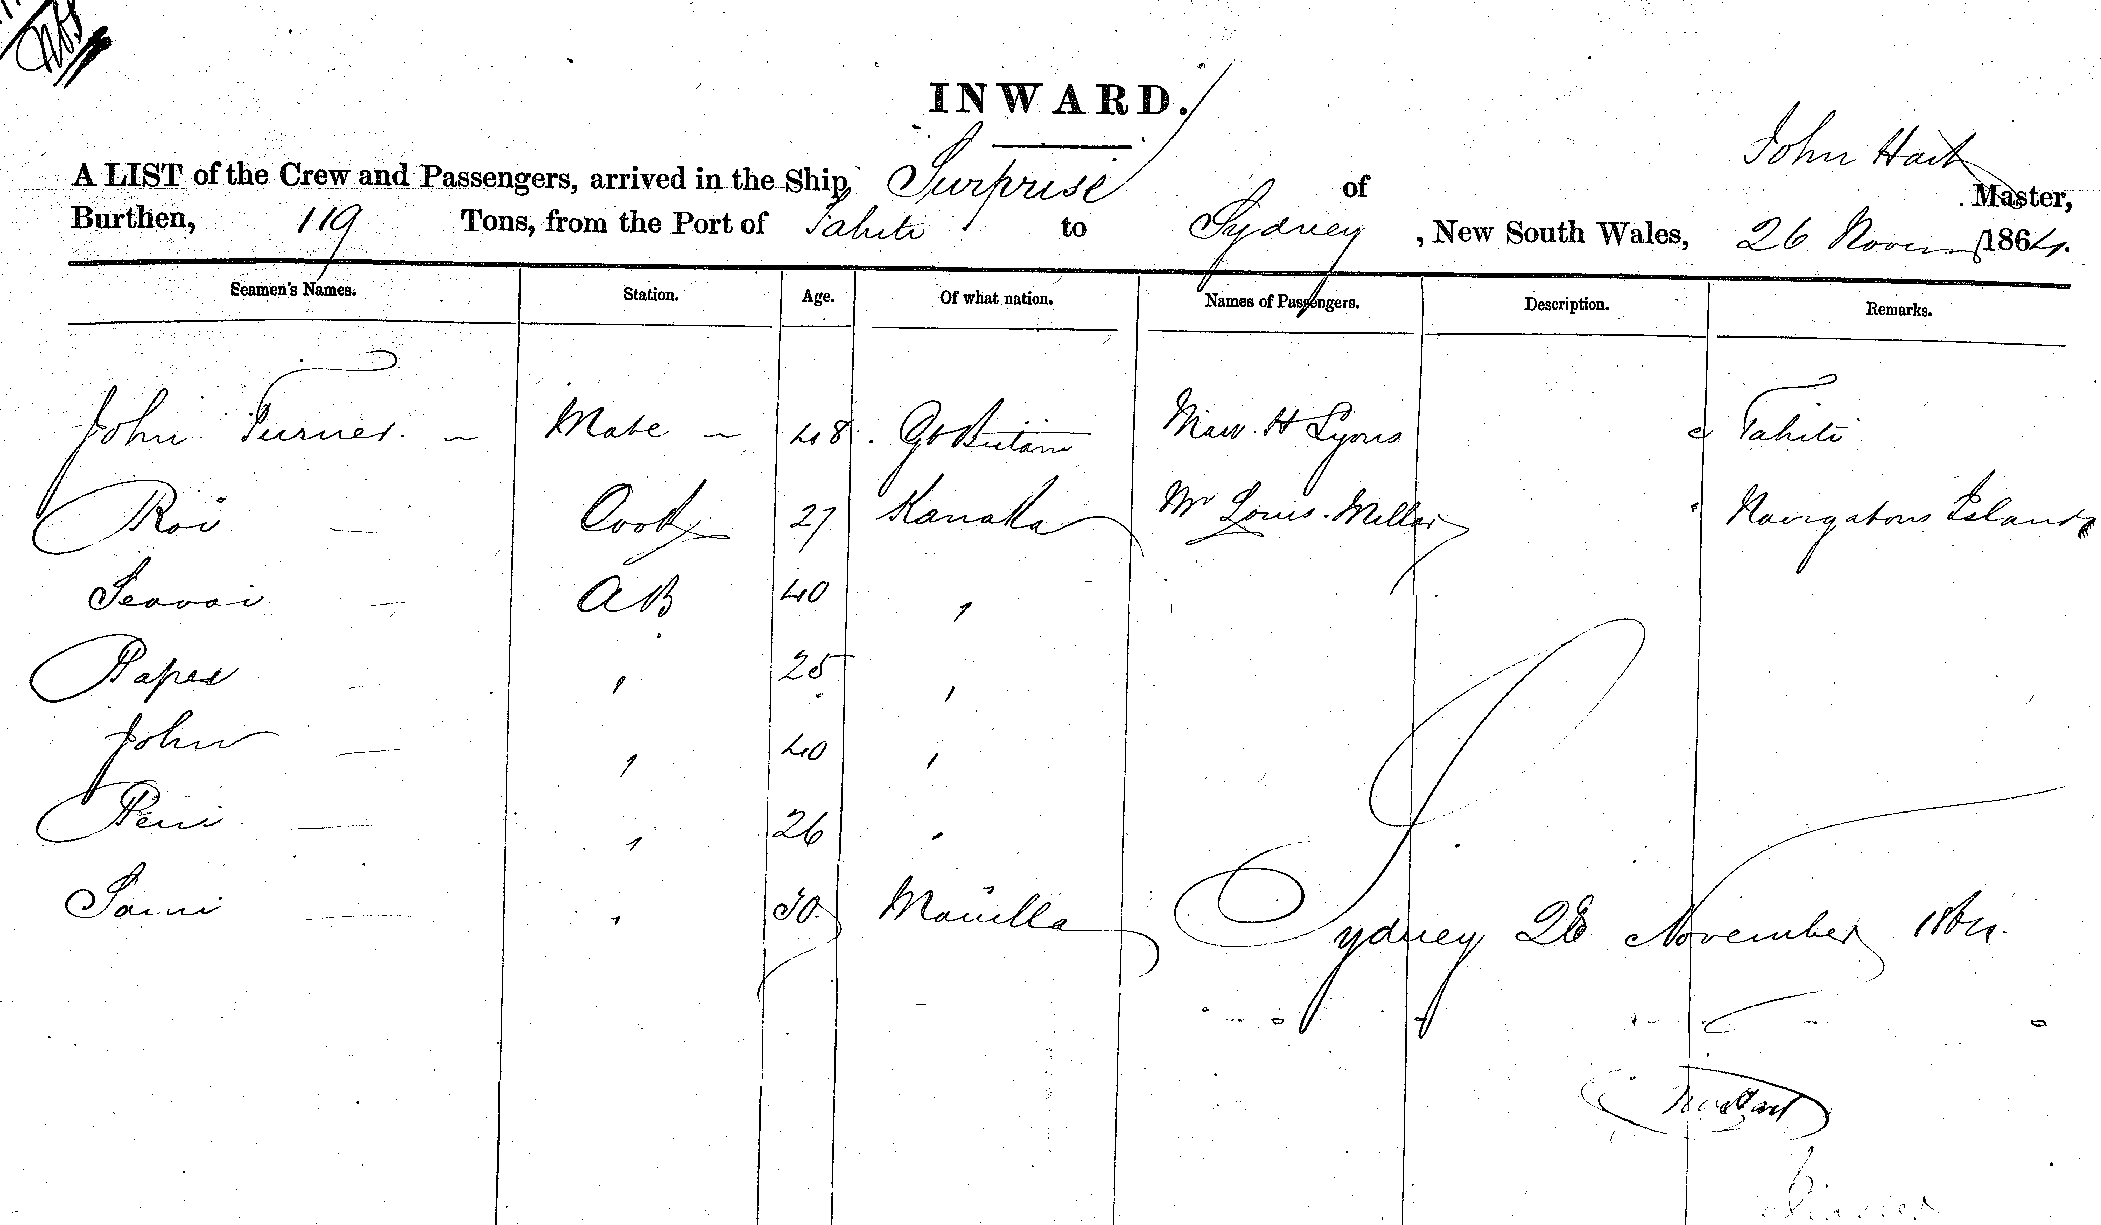 INWARD.
John Hart
A LIST of the Crew and Passengers, arrived in the Ship, Surprise of Master,
Burthen, 119 Tons, from the Port of Tahiti to Sydney, New South Wales, 26 Novem 1864.
Seamen's Names. Station. Age. Of what nation. Names of Passengers. Description. Remarks.
John Turner. — Mate — 48. Gt Britain H Lyons Tahiti
Roi — Cook 27 Kanaka Mr Louis Millar Navigators Islands
Seavai — AB 40 "
Papea — " 25 "
John — " 40 "
Peni — " 26 "
Sami — " 30 Manilla
Sydney 26 November 1864.
Hart